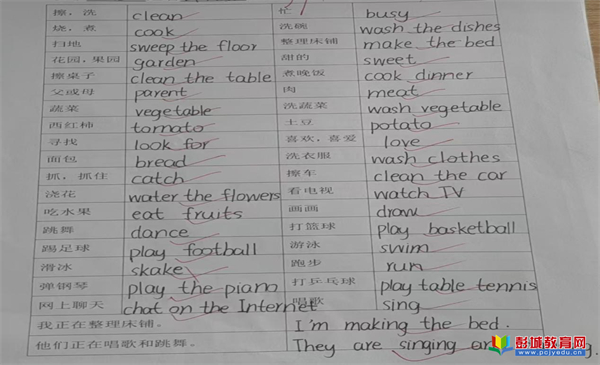 擦，洗 clean 忙 busy
烧，煮 cook 洗碗 wash the dishes
扫地 sweep the floor 整理床铺 make the bed
花园，果园 garden 甜的 sweet
擦桌子 clean the table 煮晚饭 cook dinner
父或母 parent 肉 meat
蔬菜 vegetable 洗蔬菜 wash vegetable
西红柿 tomato 土豆 potato
寻找 look for 喜欢，喜爱 love
面包 bread 洗衣服 wash clothes
抓，抓住 catch 擦车 clean the car
浇花 water the flowers 看电视 watch TV
吃水果 eat fruits 画画 draw
跳舞 dance 打篮球 play basketball
踢足球 play football 游泳 swim
滑冰 skake 跑步 run
弹钢琴 play the piano 打乒乓球 play table tennis
网上聊天 chat on the Internet 唱歌 sing
我正在整理床铺。 I'm making the bed.
他们正在唱歌和跳舞。 They are singing
彭城教育网
www.pcjyedu.cn